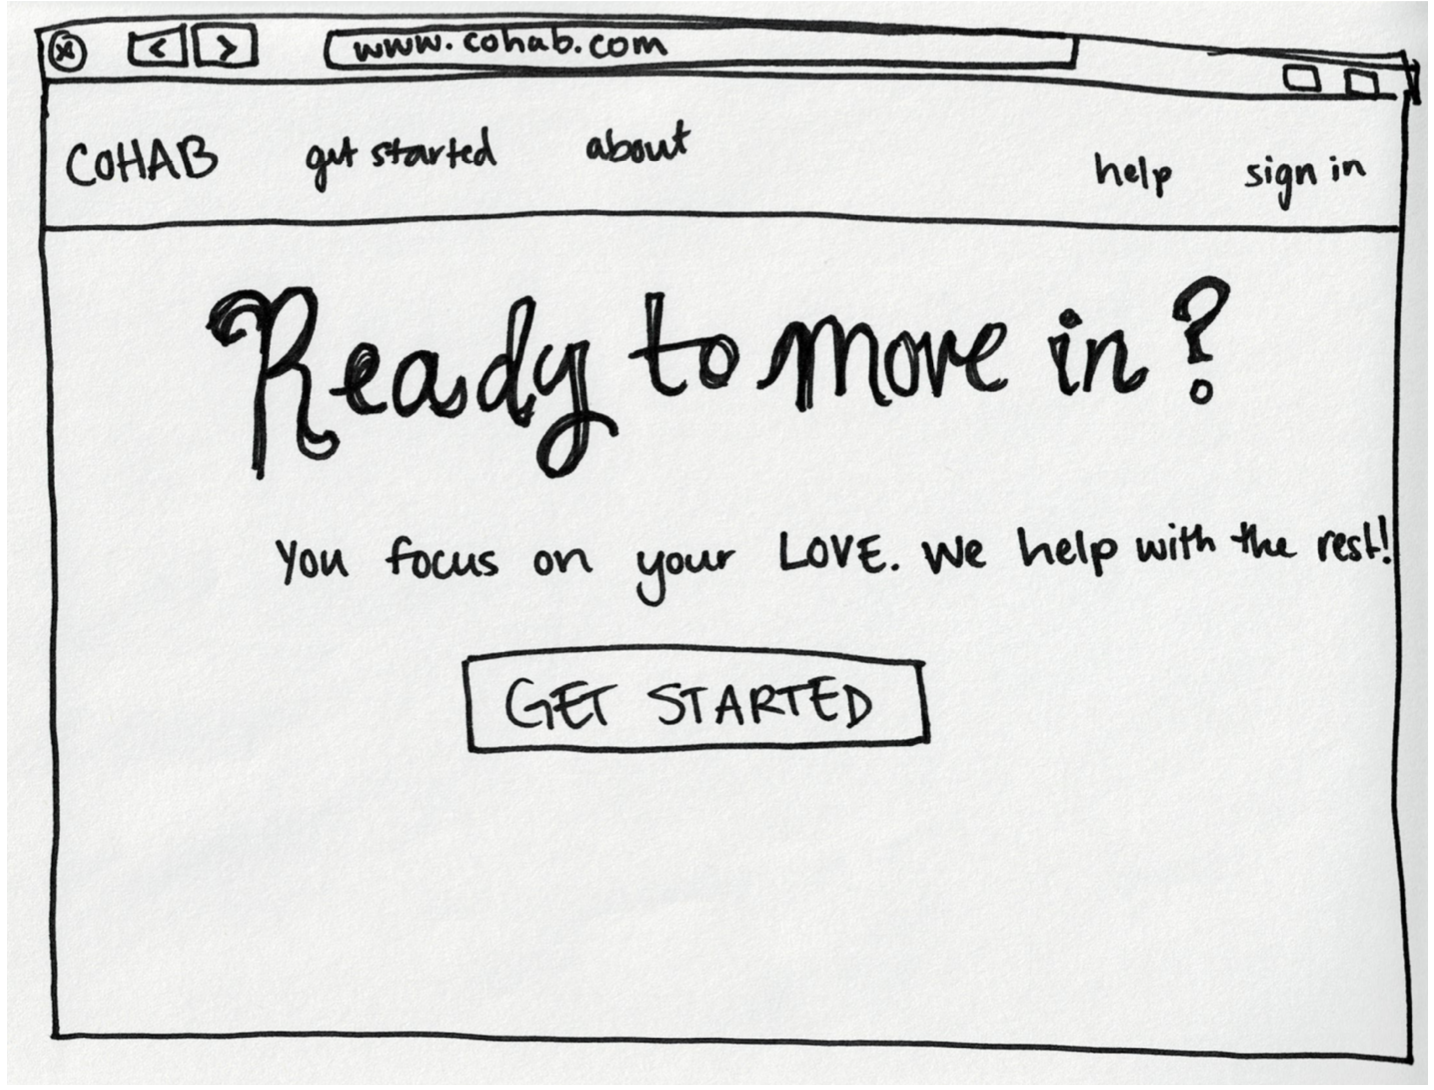 www.cohab.com
COHAB get started about help sign in
Ready to move in?
You focus on your LOVE. We help with the rest!
GET STARTED